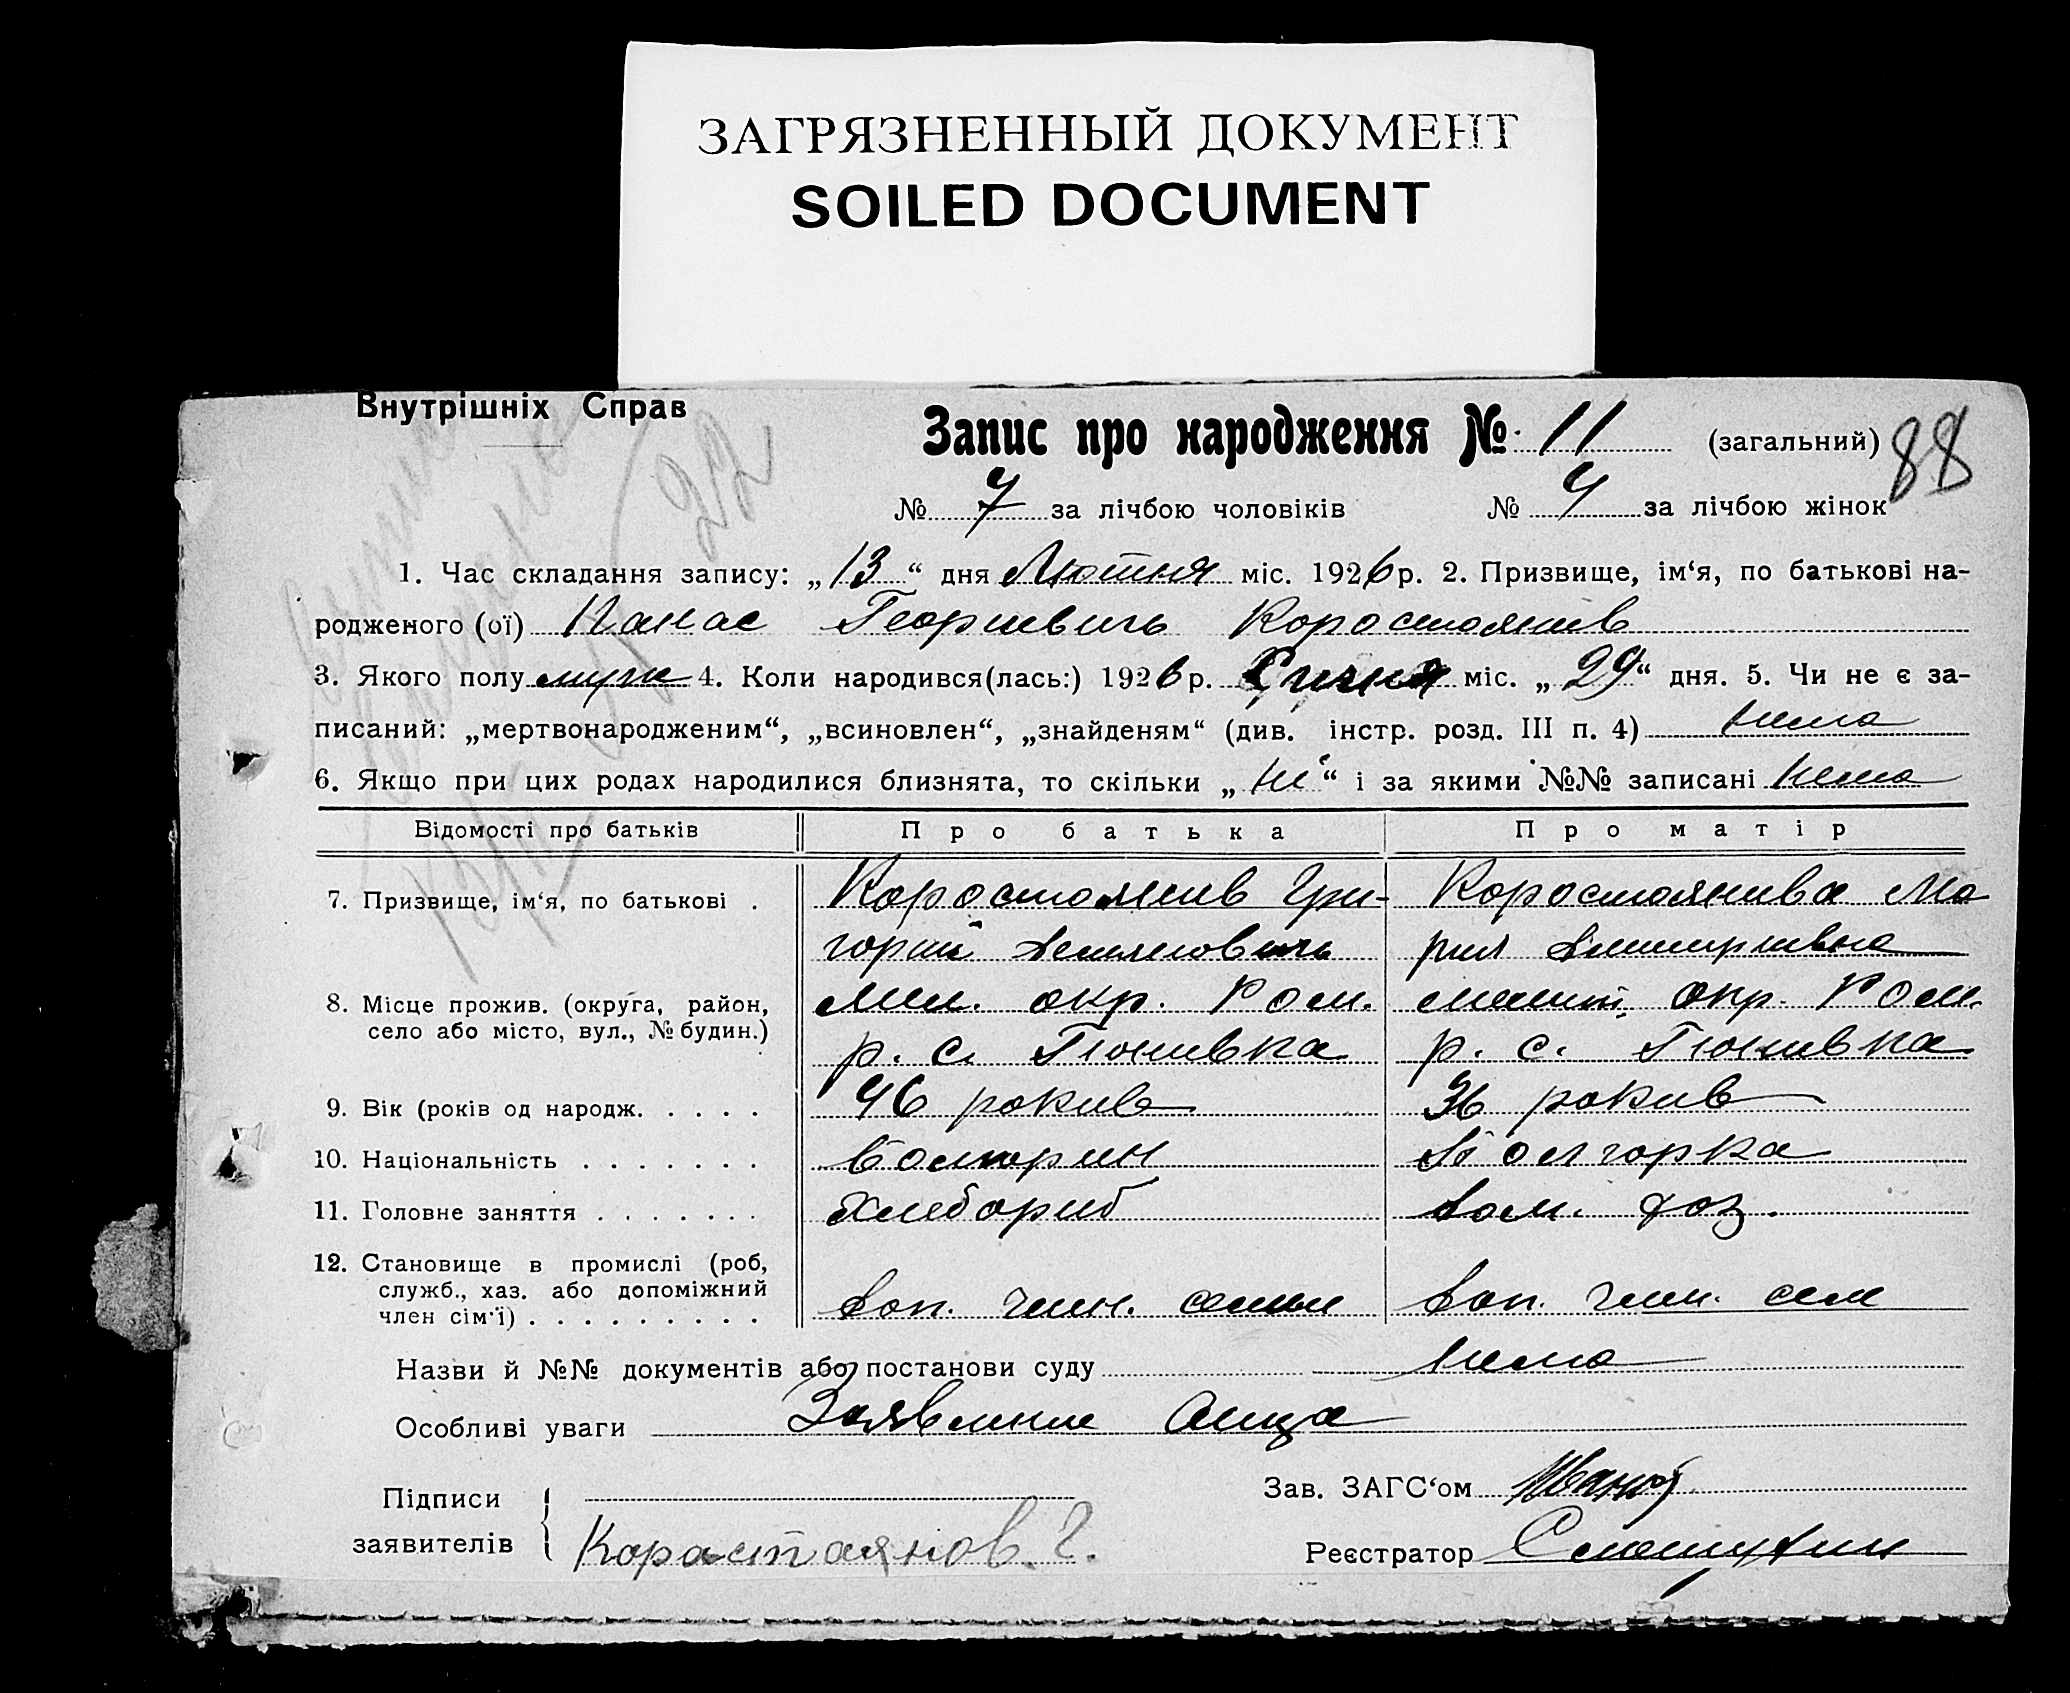 ЗАГРЯЗНЕННЫЙ ДОКУМЕНТ
SOILED DOCUMENT
Внутрішніх Справ
Запис про народження №. 11 (загальний) 88
№ 7 за лічбою чоловіків № 4 за лічбою жінок
22
1. Час складання запису: „13“ дня Лютня міс. 1926 р. 2. Призвище, ім‘я, по батькові на-
родженого (ої) Панас Георгиевичь Коростоянив
3. Якого полу муж 4. Коли народився(лась:) 1926 р. Сичня міс. „29“ дня. 5. Чи не є за-
писаний: „мертвонародженим“, „всиновлен“, „знайденям“ (див. інстр. розд. III п. 4) нема
6. Якщо при цих родах народилися близнята, то скільки „не“ і за якими №№ записані нема
Відомості про батьків Про батька Про матір
7. Призвище, ім‘я, по батькові . Коростоянив Гри- Коростоянива Ма
горий Демянович рия Дмитривна
8. Місце прожив. (округа, район, Мел. окр. Ром. мелит. окр. Ром.
село або місто, вул., № будин.) р. с. Гюнивка р. с. Гюнивка
9. Вік (років од народж. . . . . 46 рокив 36 рокив
10. Національність . . . . . . . Болгорин Болгорка
11. Головне заняття . . . . . . . хлебориб дом. хоз.
12. Становище в промислі (роб,
служб., хаз. або допоміжний
член сім‘ї) . . . . . . . . . доп. член. семьи доп. член. сем
Назви й №№ документів або постанови суду нема
Особливі уваги Заявление Отца
Зав. ЗАГС‘ом
Підписи
заявителів Корастаянов. Г.
Реєстратор